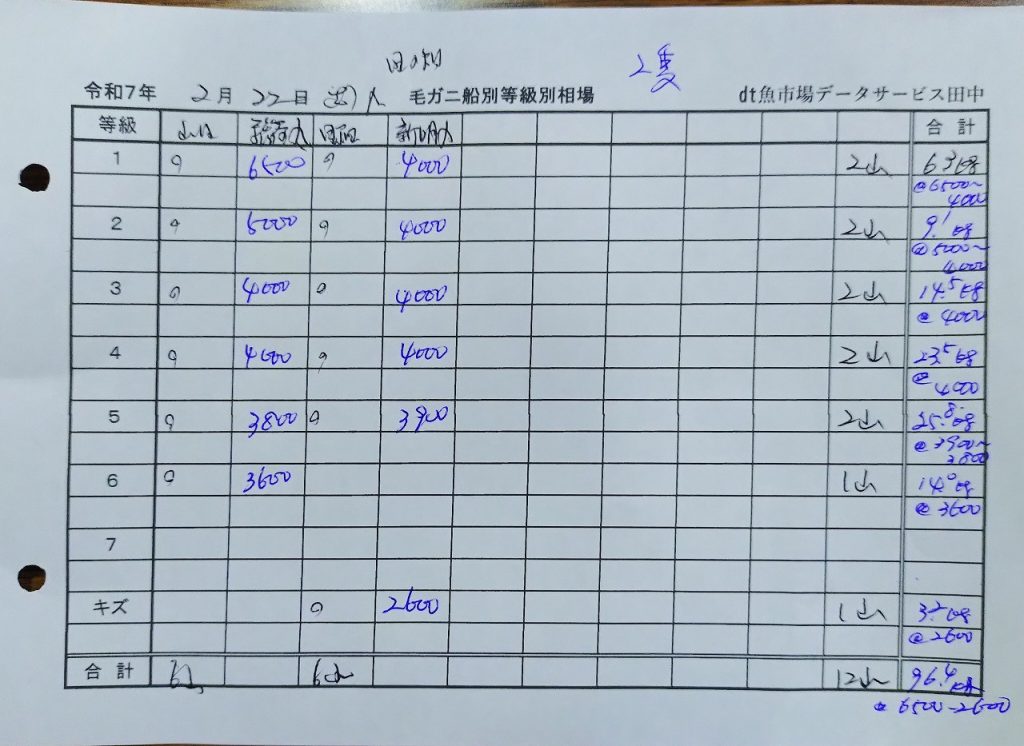 2隻
令和7年 2月 22日 毛ガニ船別等級別相場 dt魚市場データサービス田中
等級 合計
1 6500 4000 2山 6.3kg
@6500~4000
2 5000 4000 2山 9.1kg
@5000~4000
3 4000 4000 2山 14.5kg
@4000
4 4000 4000 2山 23.5kg
@4000
5 3800 3900 2山 25.8kg
@3900~3800
6 3600 1山 14.0kg
@3600
7
キズ 2600 1山 3.2kg
@2600
合計 6山 6山 12山 96.4kg
@6500~2600